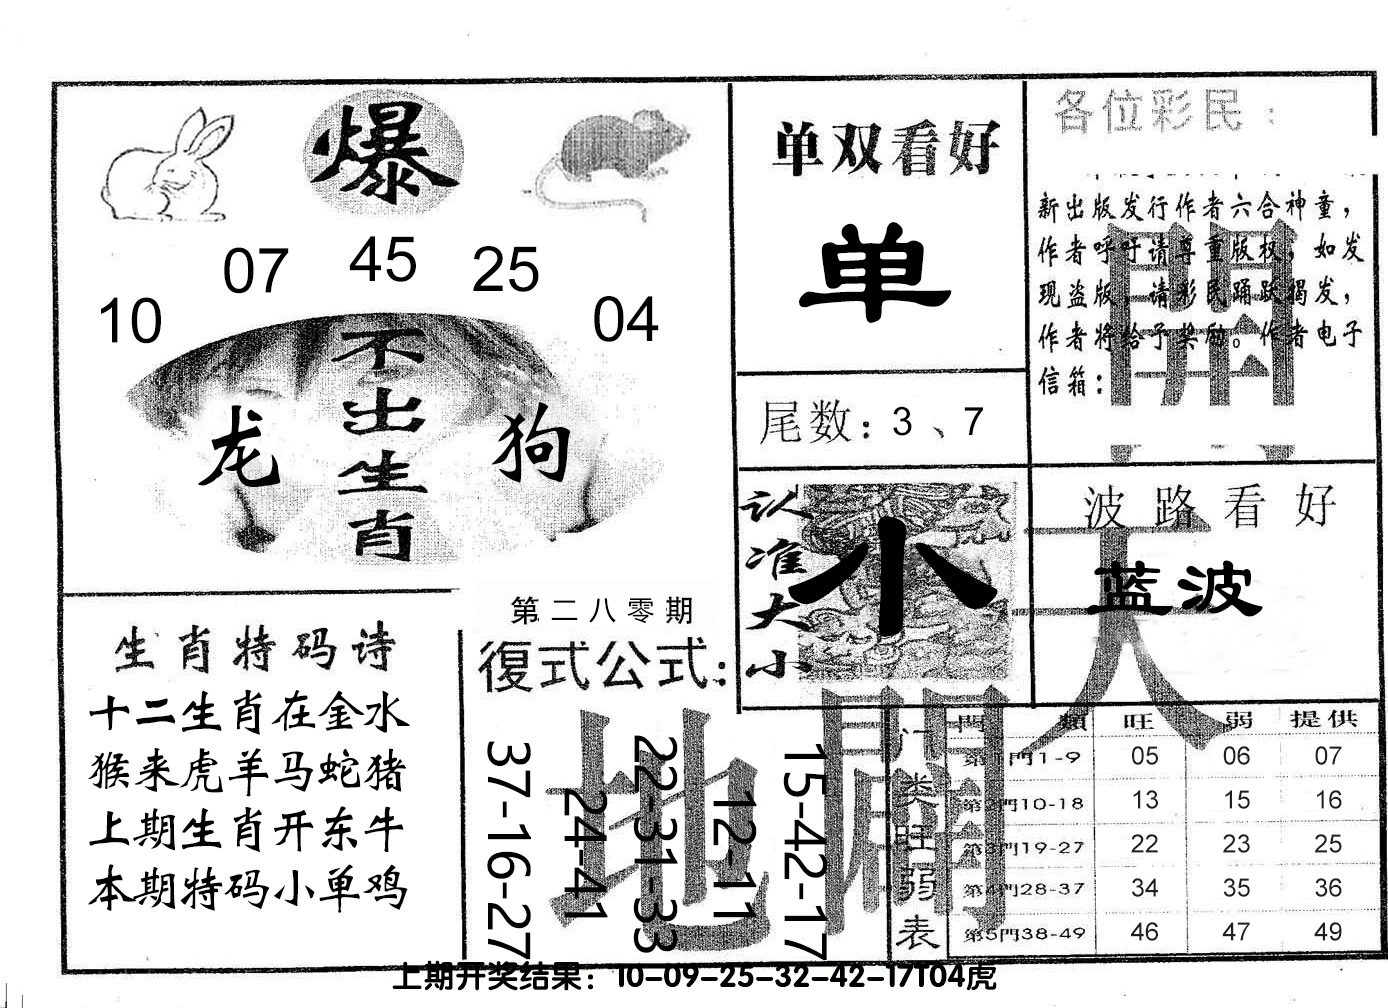 爆
10 07 45 25 04
不出生肖
龙 狗
单双看好
单
尾数：3、7
各位彩民：
新出版发行作者六合神童，
作者呼吁请尊重版权，如发
现盗版，请彩民踊跃揭发，
作者将给予奖励。作者电子
信箱：
認准大小
小
波路看好
蓝波
天
開
地
開
生肖特码诗
十二生肖在金水
猴来虎羊马蛇猪
上期生肖开东牛
本期特码小单鸡
第二八零期
復式公式：
37-16-27
24-41
22-31-33
12-11
15-42-17
门类旺弱表
門類 旺 弱 提供
第1門1-9 05 06 07
第2門10-18 13 15 16
第3門19-27 22 23 25
第4門28-37 34 35 36
第5門38-49 46 47 49
上期开奖结果：10-09-25-32-42-17T04虎